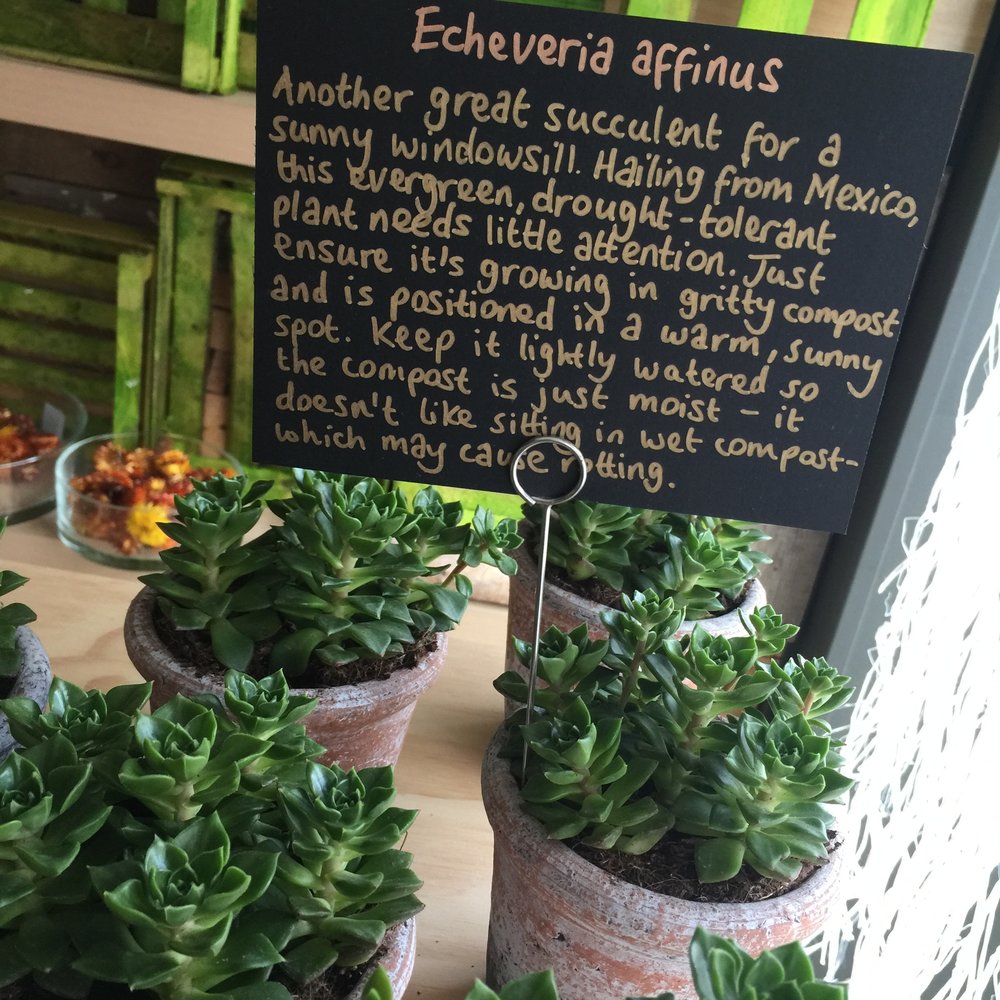 Echeveria affinus
Another great succulent for a
sunny windowsill. Hailing from Mexico,
this evergreen, drought-tolerant
plant needs little attention. Just
ensure it's growing in gritty compost
and is positioned in a warm, sunny
spot. Keep it lightly watered so
the compost is just moist - it
doesn't like sitting in wet compost-
which may cause rotting.